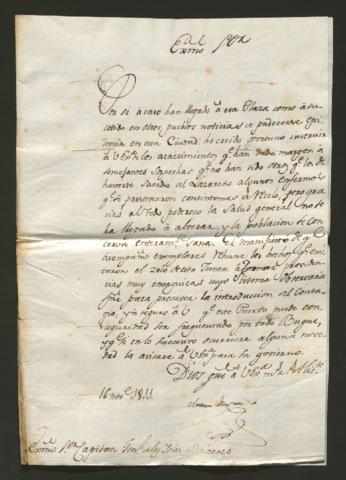 Exmo Sor
Por si acaso han llegado a esa Plaza como a su
cedido en otros puntos noticias de padecerse Epi
demia en esta Ciudad he creido oportuno instruir
a V.E. de los acaecimientos qe. han dado margen a
semejantes sospechas qe. no han sido otros qe. los de
haverse sacado al Lazareto algunos enfermos
qe. se presentaron con sintomas de recelo, pero gra
cias al todo poderoso la salud general no se
ha llegado a alterar, y la poblacion se con
serva enteramte. sana. El manifiesto de qe.
acompaño exemplares reune los hechos qe. exi
taron el zelo de esta Junta a tomar providen
cias muy energicas cuyo sistema observara
fiel para precaver la introduccion del Conta
gio, y aseguro a V.E. qe. este Puerto puede con
seguridad ser frequentado por todo Buque,
y qe. si en lo succesivo ocurriere alguna nove
dad la avisare a V.E. para su govierno.
Dios gue. a V.E. ms. as.
16 nove. 1811.
Exmo. Sor. Capitan Genl. de las Islas Baleares